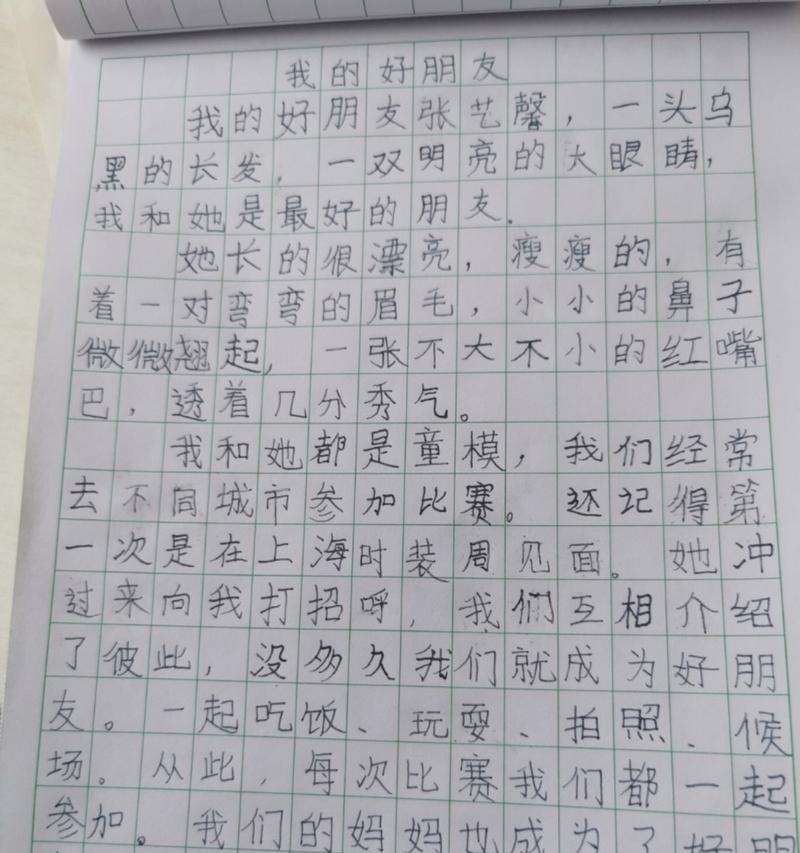 我的好朋友
我的好朋友张艺馨，一头乌
黑的长发，一双明亮的大眼睛，
我和她是最好的朋友.
她长的很漂亮，瘦瘦的，有
着一对弯弯的眉毛，小小的鼻子
微微翘起，一张不大不小的红嘴
巴，透着几分秀气。
我和她都是童模，我们经常
去不同城市参加比赛。还记得第
一次是在上海时装周见面。她冲
过来向我打招呼，我们互相介绍
了彼此，没多久我们就成为好朋
友。一起吃饭、玩耍、拍照、候
场。从此，每次比赛我们都一起
参加。我们的妈妈也成为了好朋